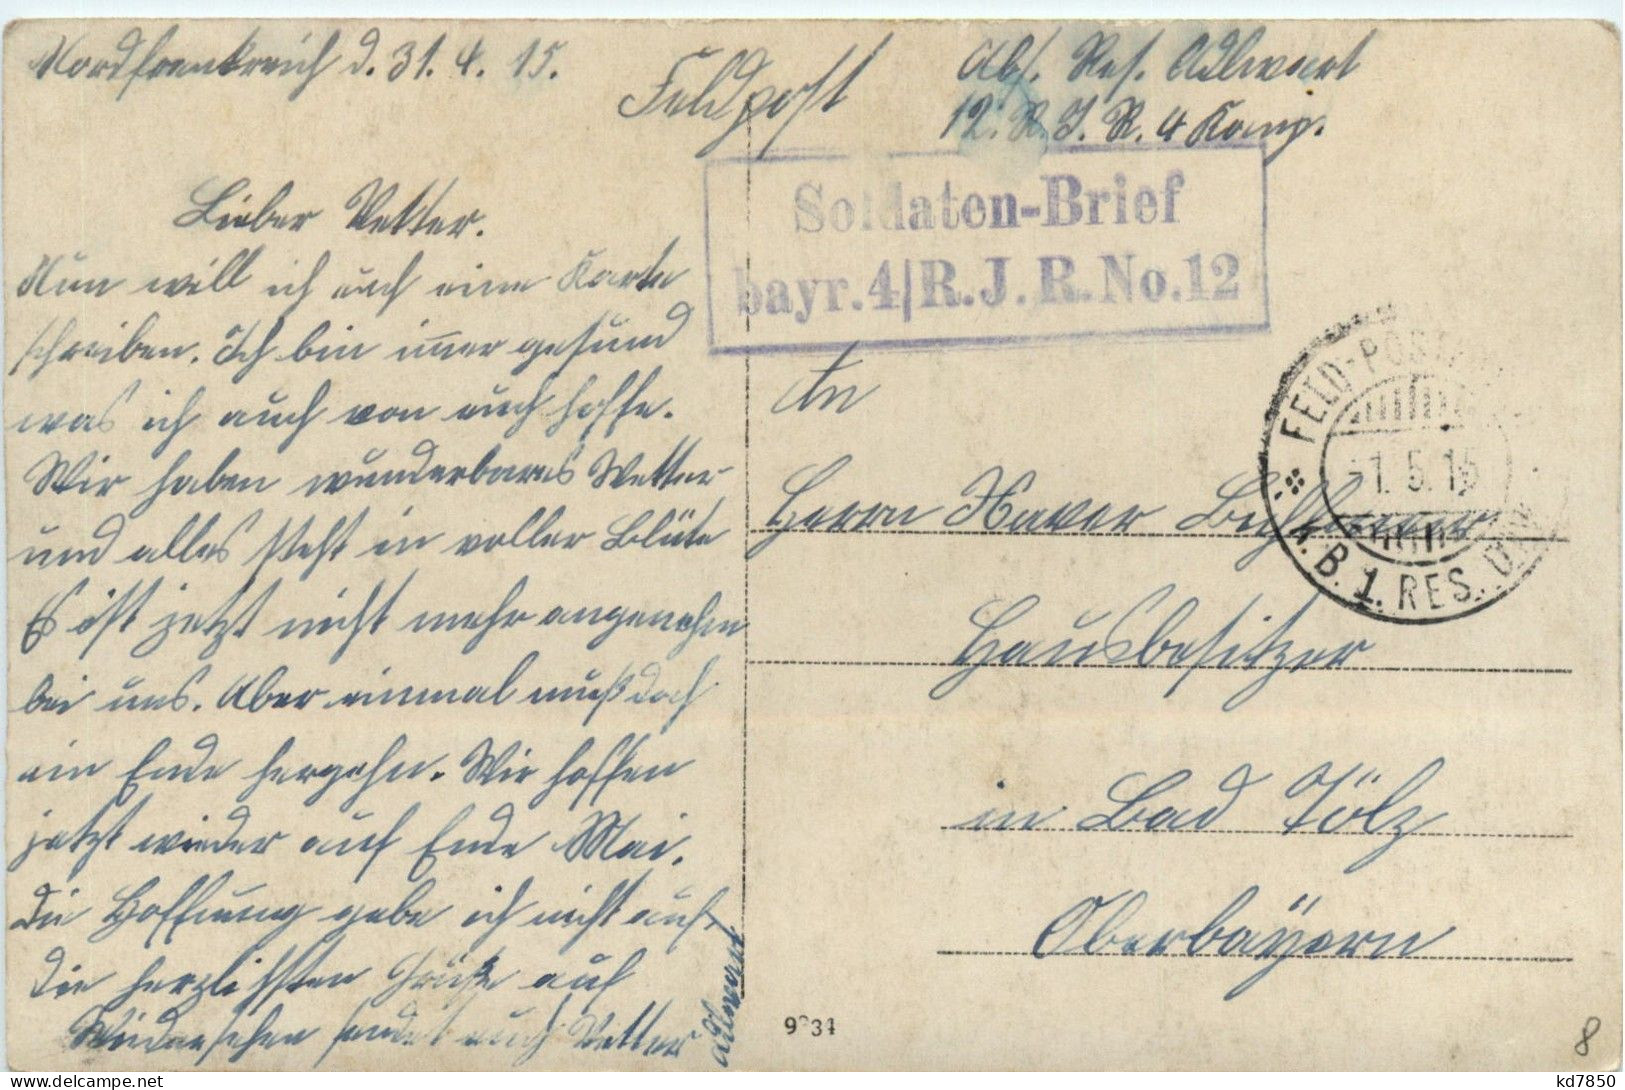 Nordfrankreich d. 31. 4. 15.
Feldpost
Abs. Res. Adlwart
12. R. J. R. 4 Komp.
Soldaten-Brief
bayr. 4/R. J. R. No. 12
Lieber Vetter.
Nun will ich euch eine Karte
schreiben. Ich bin imer gesund
was ich auch von euch hoffe.
Wir haben wunderbares Wetter
und alles steht in voller Blüte
Es ist jetzt nicht mehr angenehm
bei uns. Aber einmal muß doch
ein Ende hergehn. Wir hoffen
jetzt wieder auf Ende Mai.
Die Hoffnung gebe ich nicht auf.
Die herzlichsten Grüße auf
Wiedersehen sendet euch Vetter
Adlwart
An
Herrn Xaver
Hausbesitzer
in Bad Tölz
Oberbayern
FELD-POST
-1. 5. 15
K. B. 1. RES. DIV.
9 34
8
kd7850